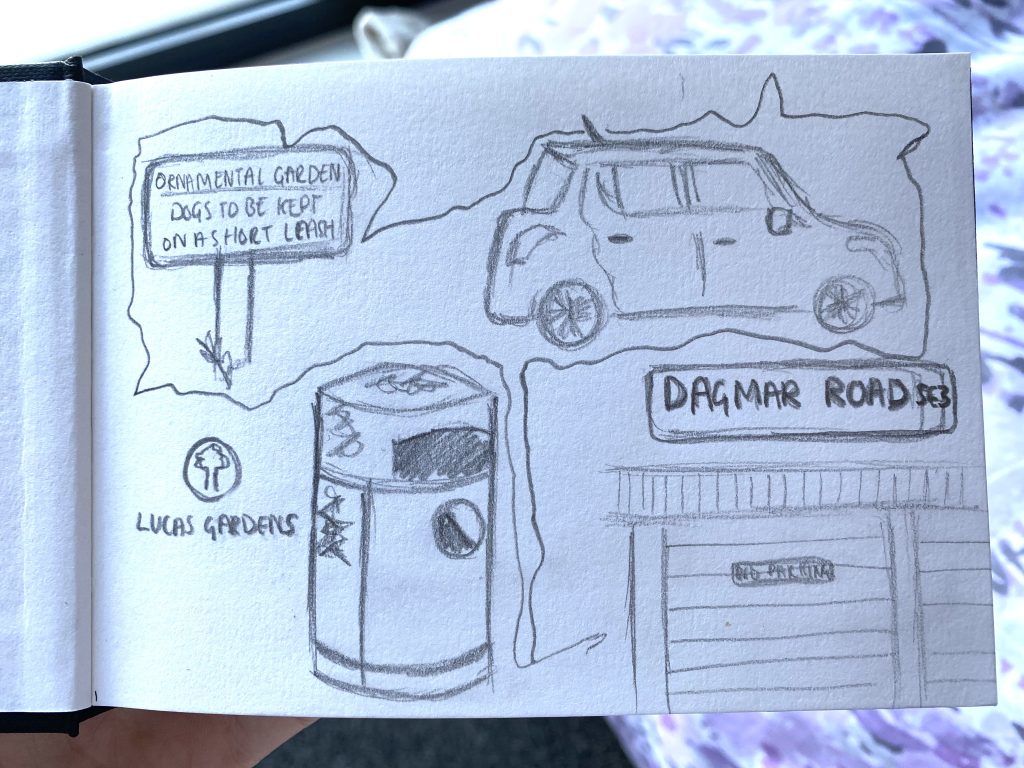 ORNAMENTAL GARDEN
DOGS TO BE KEPT
ON A SHORT LEASH
DAGMAR ROAD SE3
LUCAS GARDENS
NO PARKING